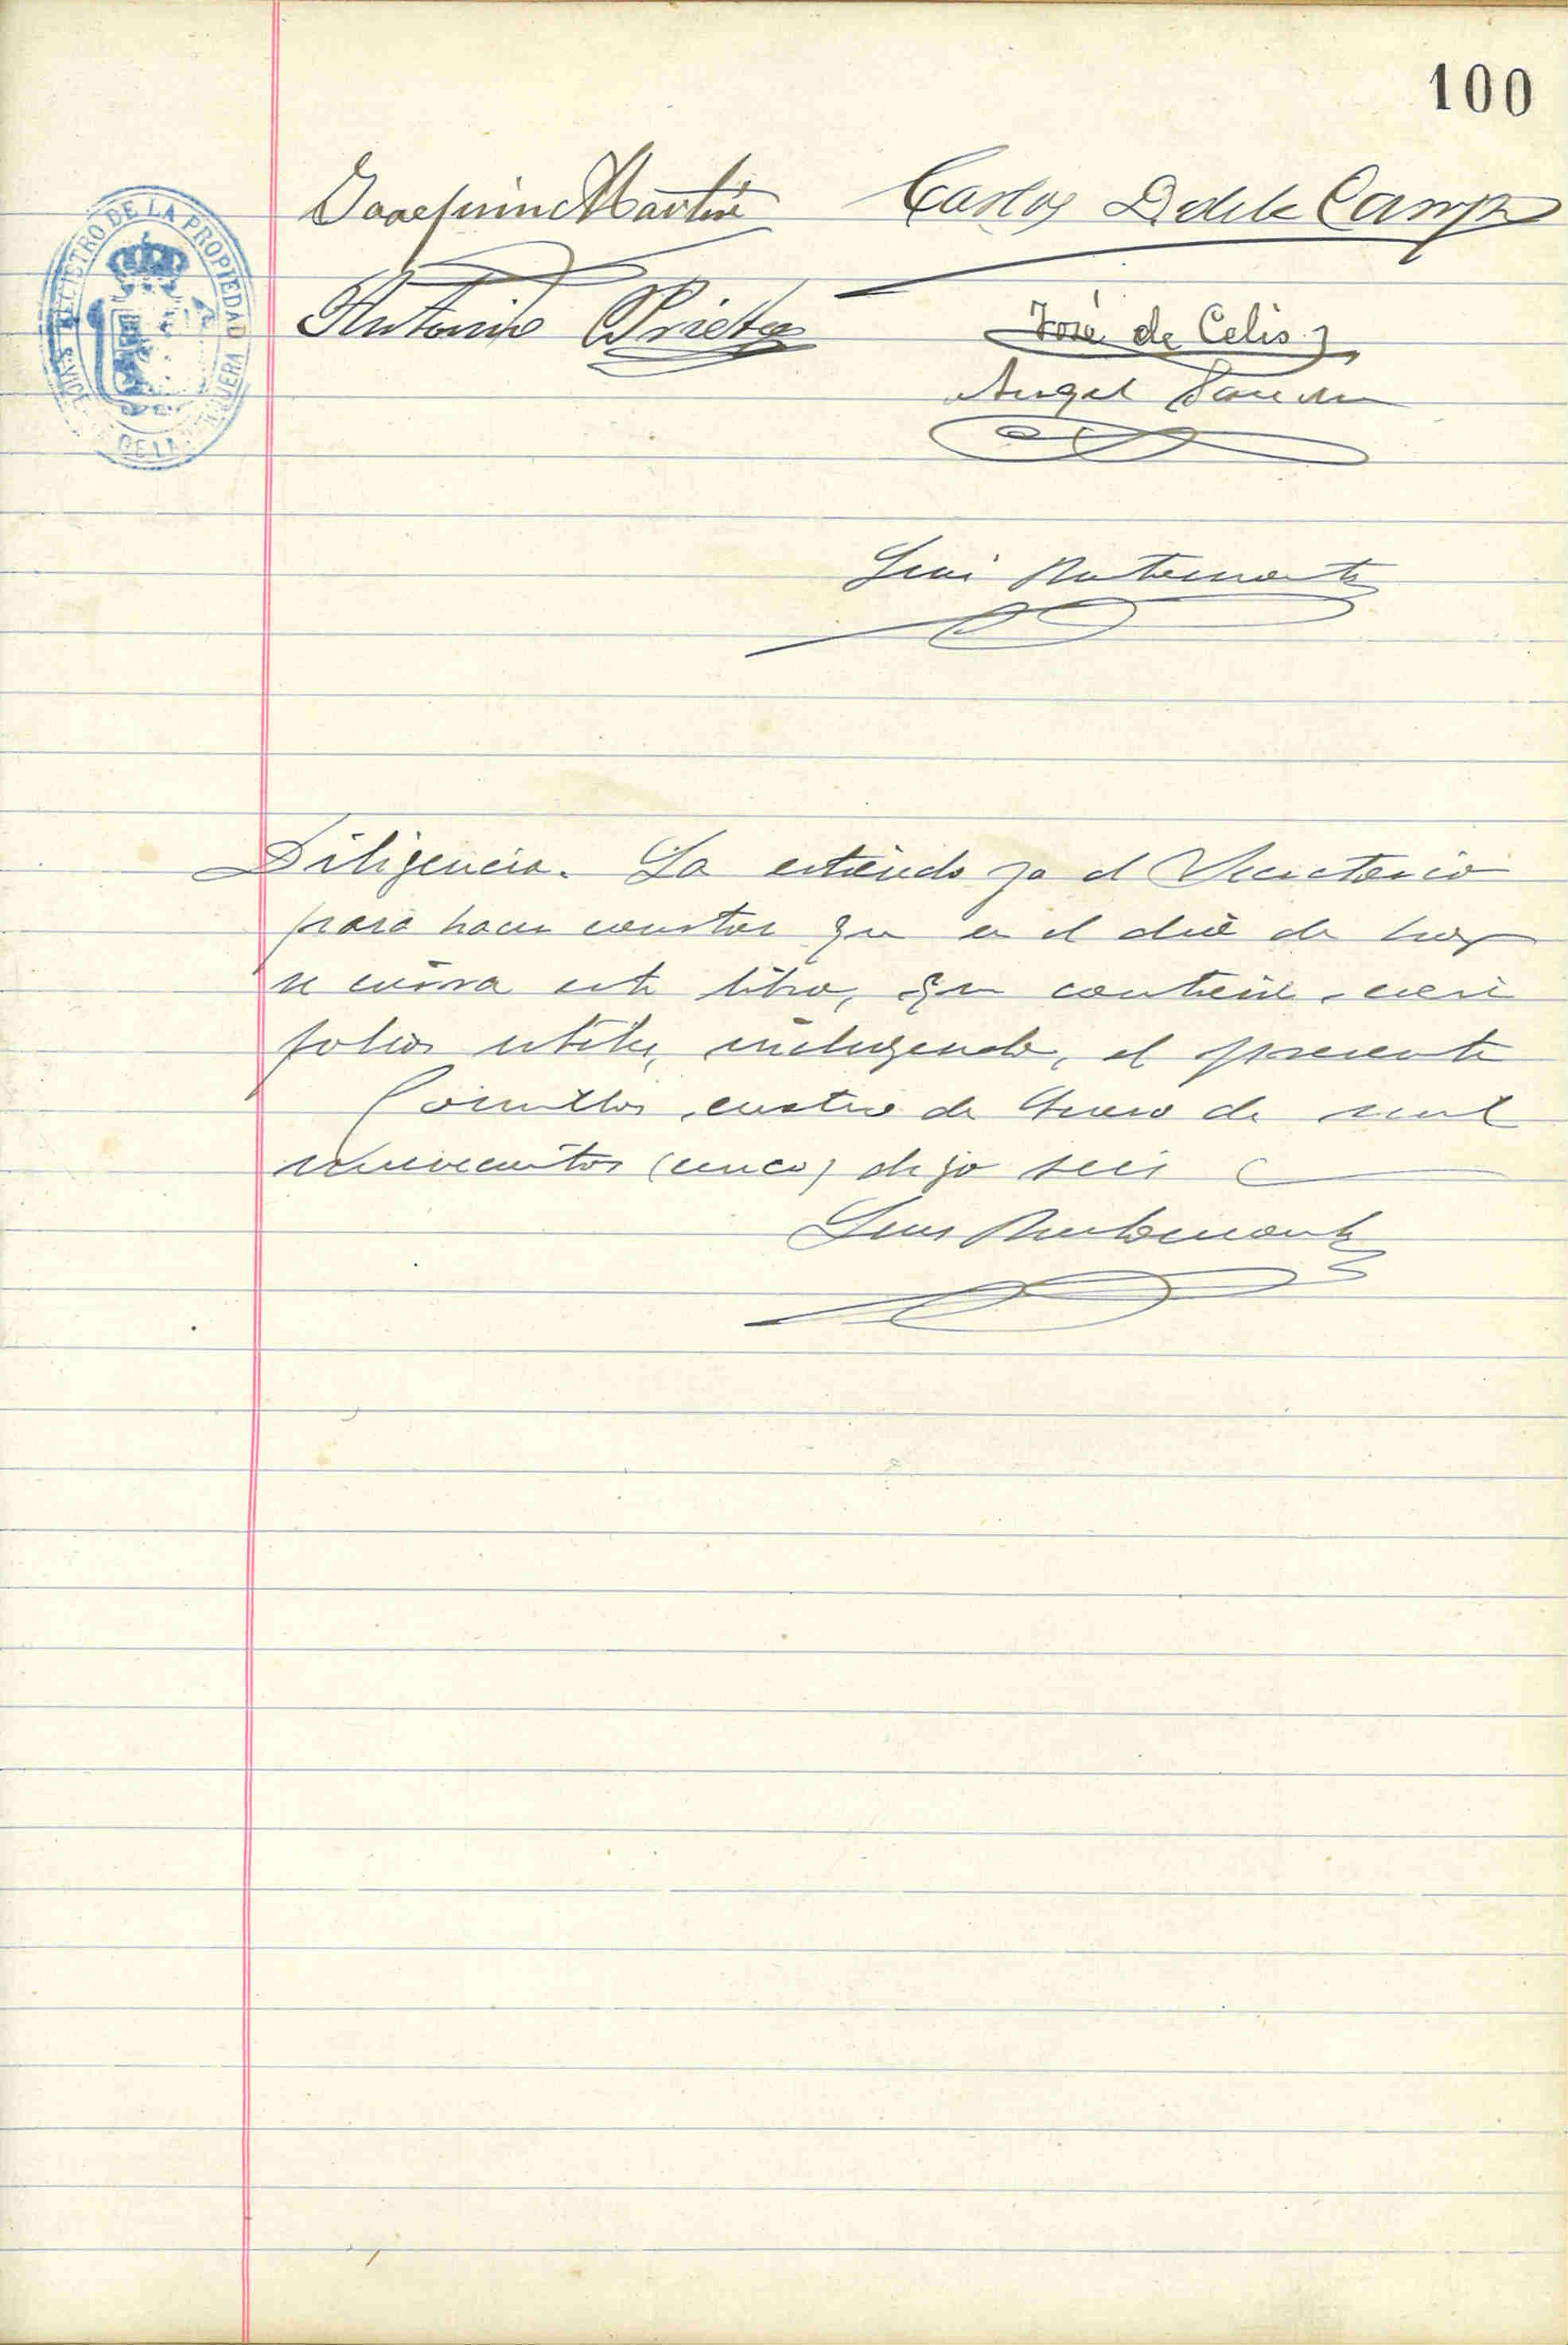 100
REGISTRO DE LA PROPIEDAD
Joaquin Martin Carlos D. de la Campa
Antonio Prieto José de Celis
Angel
Luis Bustamante
Diligencia. La extiendo yo el Secretario
para hacer constar que en el dia de hoy
se cierra este libro, que contiene cien
folios utiles, incluyendo, el presente
Comillas, cuatro de Enero de mil
novecientos (cinco) digo seis
Luis Bustamante